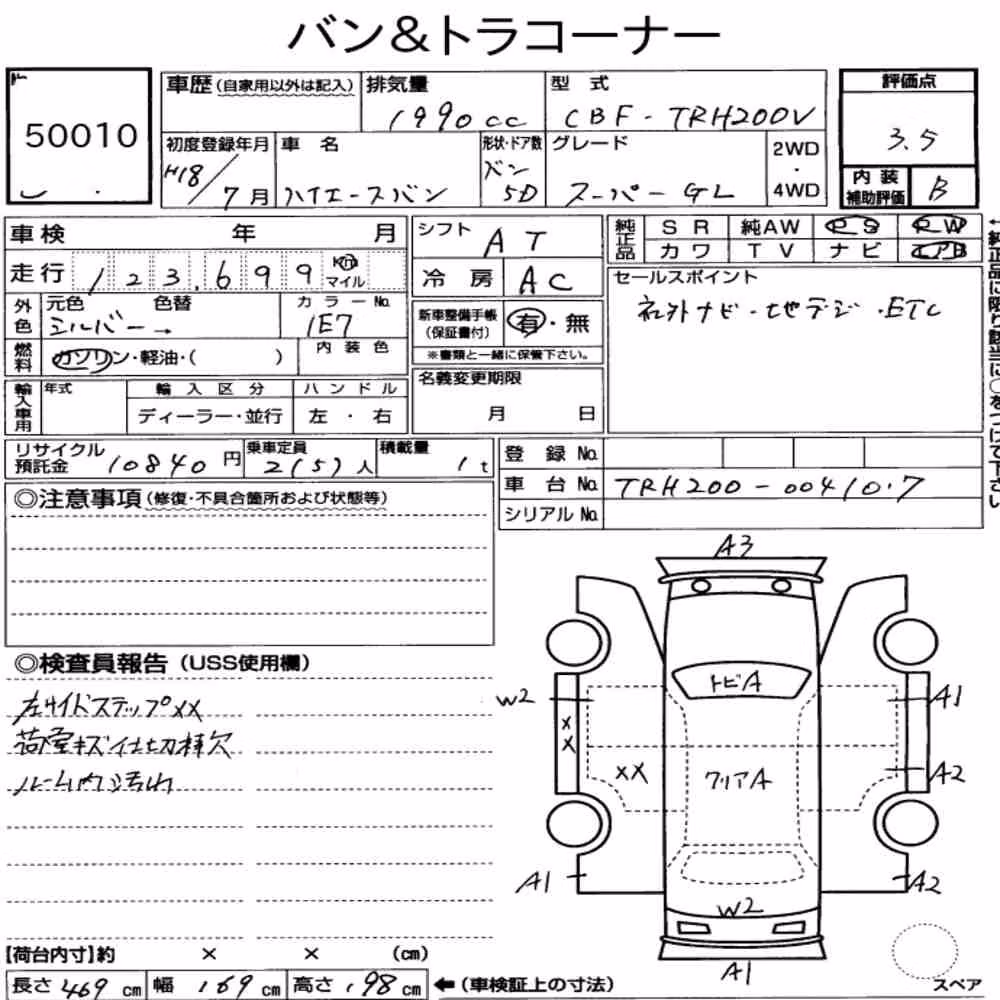 バン＆トラコーナー
50010
車歴（自家用以外は記入）
排気量
1990cc
型 式
CBF-TRH200V
評価点
3.5
初度登録年月
H18/7月
車 名
ハイエースバン
形状・ドア数
バン
5D
グレード
スーパーGL
2WD
・
4WD
内 装
補助評価
B
車 検 年 月
走 行 123,699 Km
マイル
シフト AT
冷 房 AC
純正品
SR 純AW PS PW
カワ TV ナビ エアB
←純正品に限り該当に○をつけて下さい
外色
元色 色替
シルバー→
カラーNo.
1E7
燃料
ガソリン・軽油・( )
内 装 色
新車整備手帳
（保証書付）
有・無
※書類と一緒に保管下さい。
セールスポイント
社外ナビ・地デジ・ETC
輸入車用
年式
輸 入 区 分
ディーラー・並行
ハ ン ド ル
左 ・ 右
名義変更期限
月 日
リサイクル
預託金 10840円
乗車定員
2(5)人
積載量
1t
登 録 No.
車 台 No. TRH200-0041017
シリアル No.
◎注意事項（修復・不具合箇所および状態等）
◎検査員報告（USS使用欄）
左サイドステップXX
荷室キズ 仕切棒欠
ルーム内汚れ
A3
トビA
W2
A1
XX
XX
クリアA
A2
A1
A2
W2
A1
スペア
【荷台内寸】約 × × (cm)
長さ 469 cm 幅 169 cm 高さ 198 cm ←（車検証上の寸法）